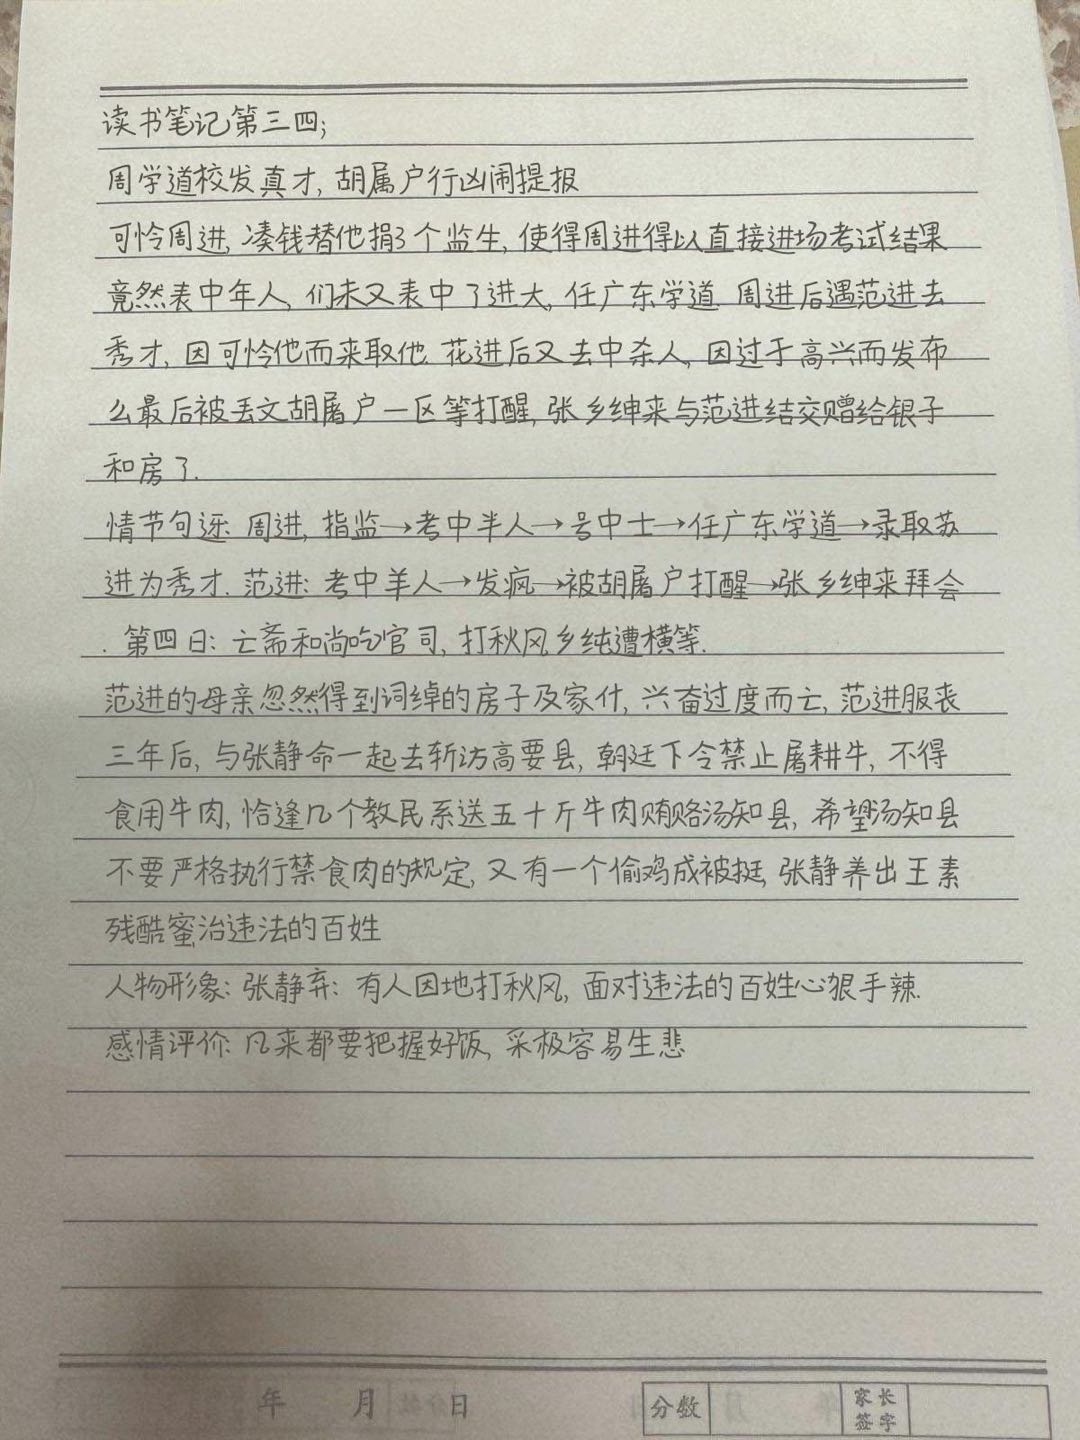 读书笔记第三四;
周学道校发真才, 胡属户行凶闹提报
可怜周进, 凑钱替他捐3个监生, 使得周进得以直接进场考试结果
竟然表中年人, 们未又表中了进大, 任广东学道. 周进后遇范进去
秀才, 因可怜他而来取他. 花进后又去中杀人, 因过于高兴而发布
么最后被丢文胡屠户一区等打醒, 张乡绅来与范进结交赠给银子
和房了.
情节句逐: 周进, 指监→考中半人→号中士→任广东学道→录取苏
进为秀才. 范进: 考中羊人→发疯→被胡屠户打醒→张乡绅来拜会
. 第四日: 亡斋和尚吃官司, 打秋风乡纯遭横等.
范进的母亲忽然得到词绰的房子及家什, 兴奋过度而亡, 范进服丧
三年后, 与张静命一起去斩访高要县, 朝廷下令禁止屠耕牛, 不得
食用牛肉, 恰逢几个教民系送五十斤牛肉贿赂汤知县, 希望汤知县
不要严格执行禁食肉的规定, 又有一个偷鸡成被挺, 张静养出王素
残酷蜜治违法的百姓
人物形象: 张静弃: 有人因地打秋风, 面对违法的百姓心狠手辣.
感情评价: 凡来都要把握好饭, 采极容易生悲
年 月 日
分数
家长
签字